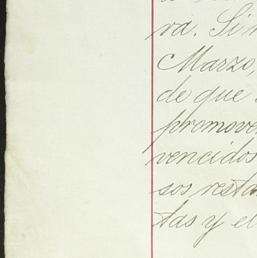 va. Sin
Marzo,
de que
promover
vencidos
sos resta
tas y el